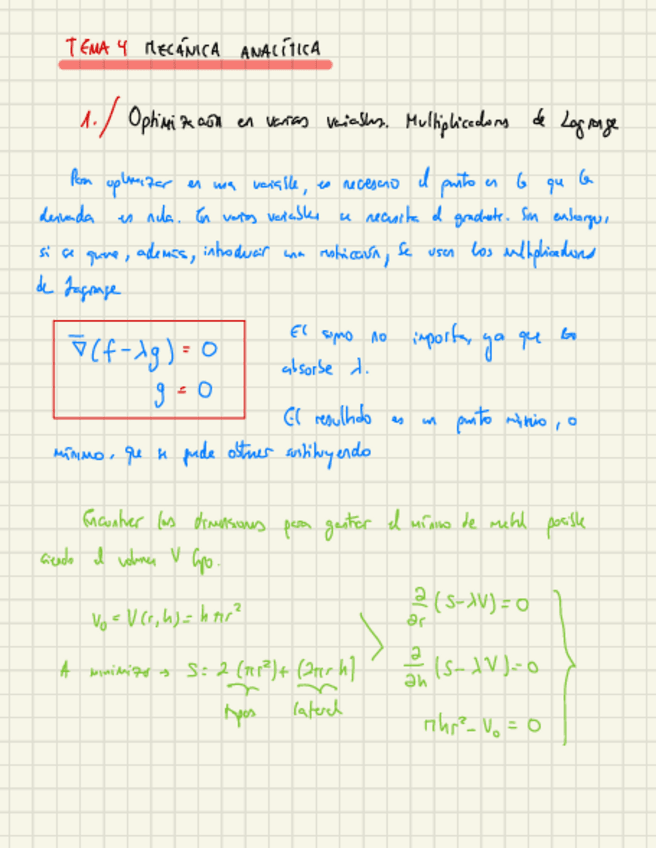 TEMA 4 MECÁNICA ANALÍTICA
1./ Optimización en varias variables. Multiplicadores de Lagrange
Para optimizar en una variable, es necesario el punto en lo que la
derivada es nula. En varias variables se necesita el gradiente. Sin embargo,
si se quiere, además, introducir una restricción, se usan los multiplicadores
de Lagrange
∇(f-λg) = 0
g = 0
El signo no importa, ya que lo
absorbe λ.
El resultado es un punto máximo, o
mínimo, que se puede obtener sustituyendo
Encontrar las dimensiones para gastar el mínimo de metal posible
siendo el volumen V fijo.
V₀ = V(r,h) = hπr²
A minimizar → S = 2(πr²) + (2πr h)
tapas lateral
∂/∂r (S-λV) = 0
∂/∂h (S-λV) = 0
πhr² - V₀ = 0